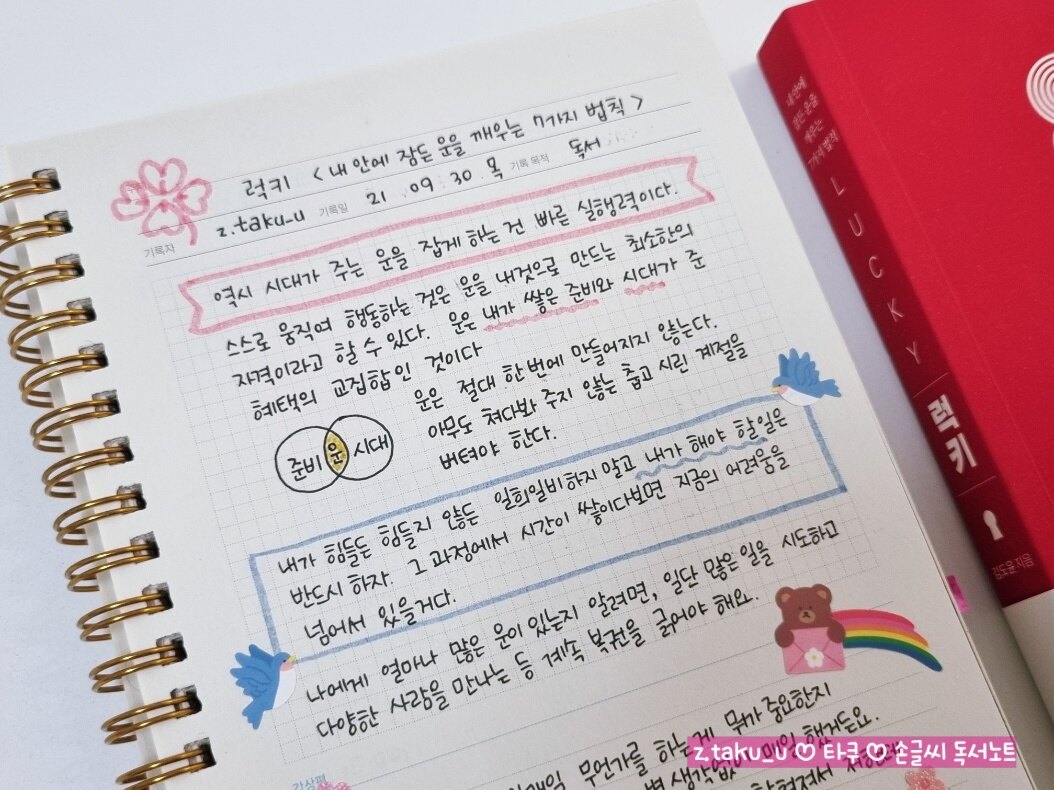 럭키 < 내 안에 잠든 운을 깨우는 7가지 법칙 >
기록자 z.taku_u 기록일 21 .09 .30 .목 기록 목적 독서
역시 시대가 주는 운을 잡게 하는 건 빠른 실행력이다.
스스로 움직여 행동하는 것은 운을 내것으로 만드는 최소한의
자격이라고 할 수 있다. 운은 내가 쌓은 준비와 시대가 준
혜택의 교집합인 것이다
운은 절대 한번에 만들어지지 않는다.
아무도 쳐다봐 주지 않는 춥고 시린 계절을
버텨야 한다.
준비 운 시대
내가 힘들든 힘들지 않든 일희일비하지 말고 내가 해야 할일은
반드시 하자. 그 과정에서 시간이 쌓이다보면 지금의 어려움을
넘어서 있을거다.
나에게 얼마나 많은 운이 있는지 알려면, 일단 많은 일을 시도하고
다양한 사람을 만나는 등 계속 복권을 긁어야 해요.
무언가를 하는게 뭐가 중요한지
별 생각없이 매일 했거든요.
감상평
내 안에
잠든 운을
깨우는
7가지 법칙
LUCKY
럭키
김도윤 지음
z.taku_u ♡ 타쿠 ♡ 손글씨 독서노트